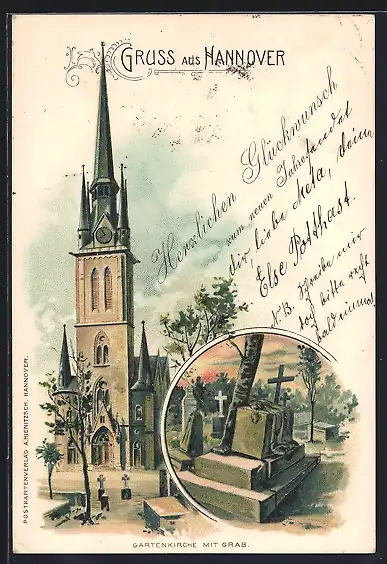 GRUSS AUS HANNOVER
Herzlichen Glückwunsch
zum neuen Jahre sendet
dir, liebe Meta, deine
Else Posthast.
N.B. Schreibe mir
doch bitte recht
bald einmal
POSTKARTENVERLAG A.HIENITZSCH, HANNOVER.
GARTENKIRCHE MIT GRAB.